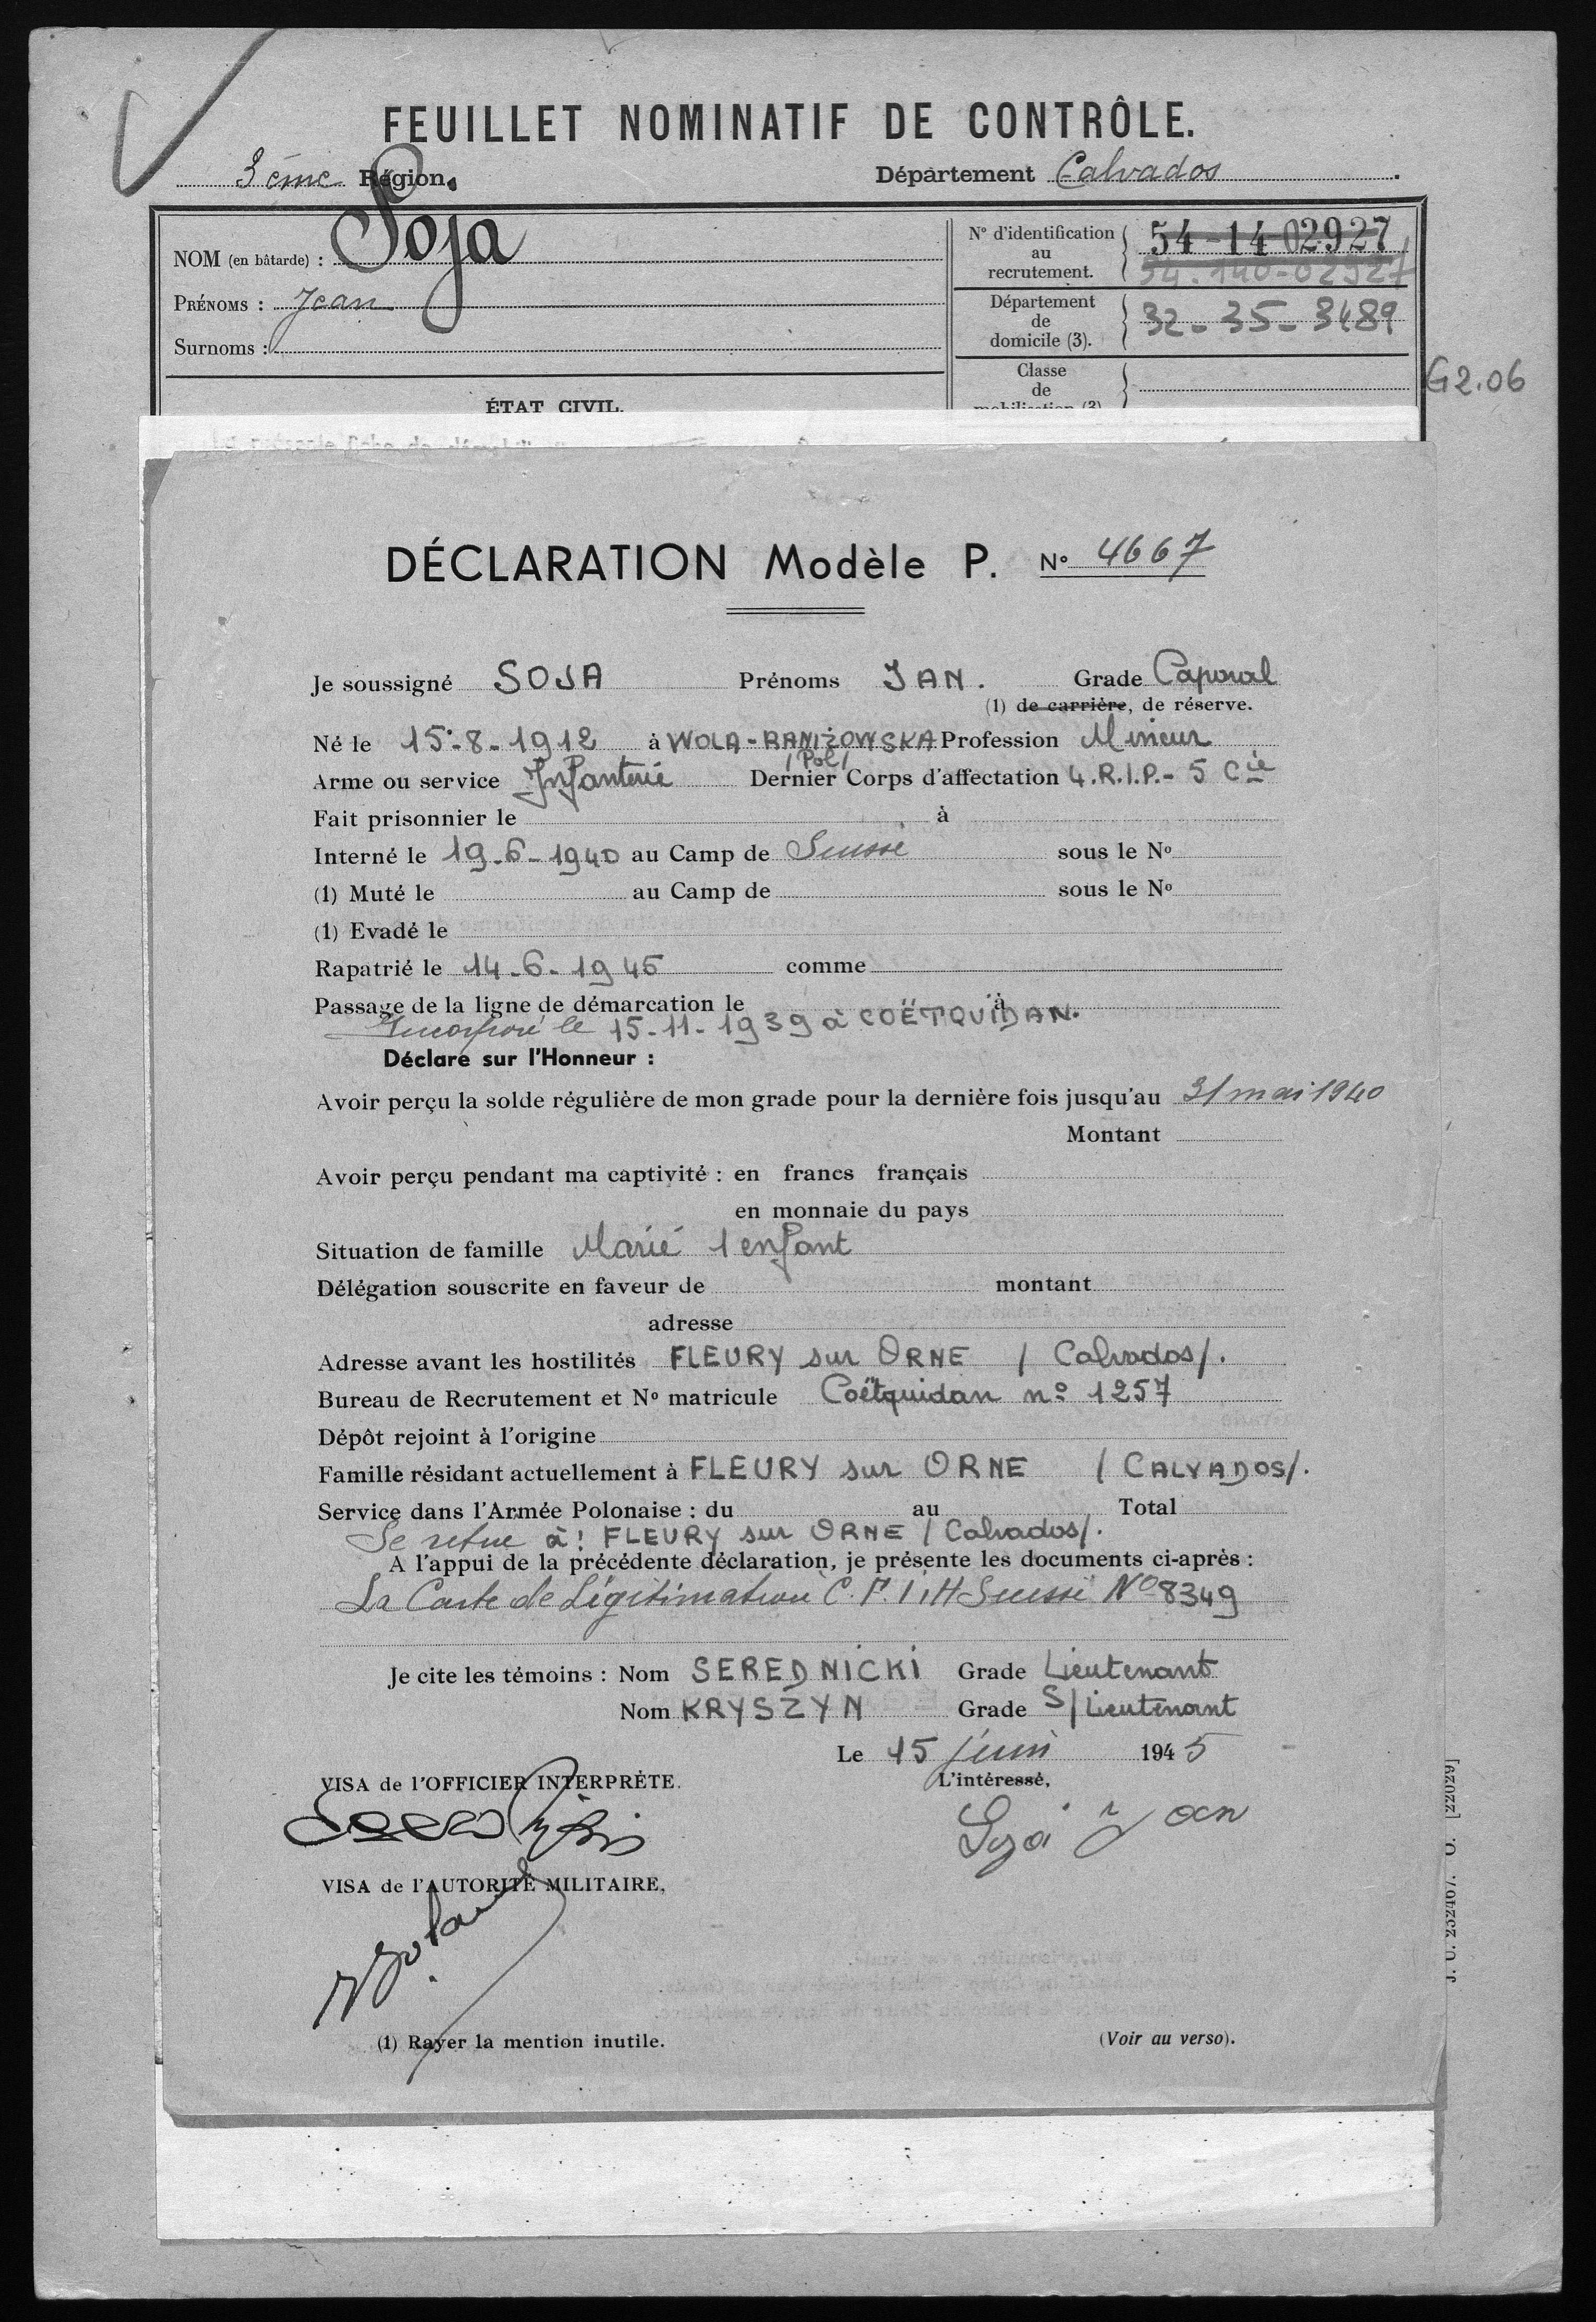 FEUILLET NOMINATIF DE CONTRÔLE.
3ème Région. Département Calvados.
NOM (en bâtarde) : Soja
PRÉNOMS : Jean
Surnoms :
N° d'identification au recrutement. 54-14-02927
54-140-02927
Département de domicile (3). 32-35-3489
Classe de
G2.06
ÉTAT CIVIL.
DÉCLARATION Modèle P. N° 4667
Je soussigné SOJA Prénoms JAN. Grade Caporal
(1) de carrière, de réserve.
Né le 15-8-1912 à WOLA-RANIŻOWSKA Profession Mineur
/Pol/
Arme ou service Infanterie Dernier Corps d'affectation 4.R.I.P.- 5 Cie
Fait prisonnier le à
Interné le 19-6-1940 au Camp de Suisse sous le N°
(1) Muté le au Camp de sous le N°
(1) Evadé le
Rapatrié le 14-6-1945 comme
Passage de la ligne de démarcation le à
Incorporé le 15-11-1939 à COËTQUIDAN.
Déclare sur l'Honneur :
Avoir perçu la solde régulière de mon grade pour la dernière fois jusqu'au 31 mai 1940
Montant
Avoir perçu pendant ma captivité : en francs français
en monnaie du pays
Situation de famille Marié 1 enfant
Délégation souscrite en faveur de montant
adresse
Adresse avant les hostilités FLEURY sur ORNE / Calvados/.
Bureau de Recrutement et N° matricule Coëtquidan n° 1257
Dépôt rejoint à l'origine
Famille résidant actuellement à FLEURY sur ORNE / CALVADOS/.
Service dans l'Armée Polonaise : du au Total
Se retire à: FLEURY sur ORNE / Calvados/.
A l'appui de la précédente déclaration, je présente les documents ci-après :
La Carte de Légitimation C.F.I.H Suisse N° 8349
Je cite les témoins : Nom SEREDNICKI Grade Lieutenant
Nom KRYSZYN Grade S/Lieutenant
Le 15 juin 1945
VISA de l'OFFICIER INTERPRÈTE. L'intéressé,
Soja Jan
VISA de l'AUTORITÉ MILITAIRE,
(1) Rayer la mention inutile. (Voir au verso).